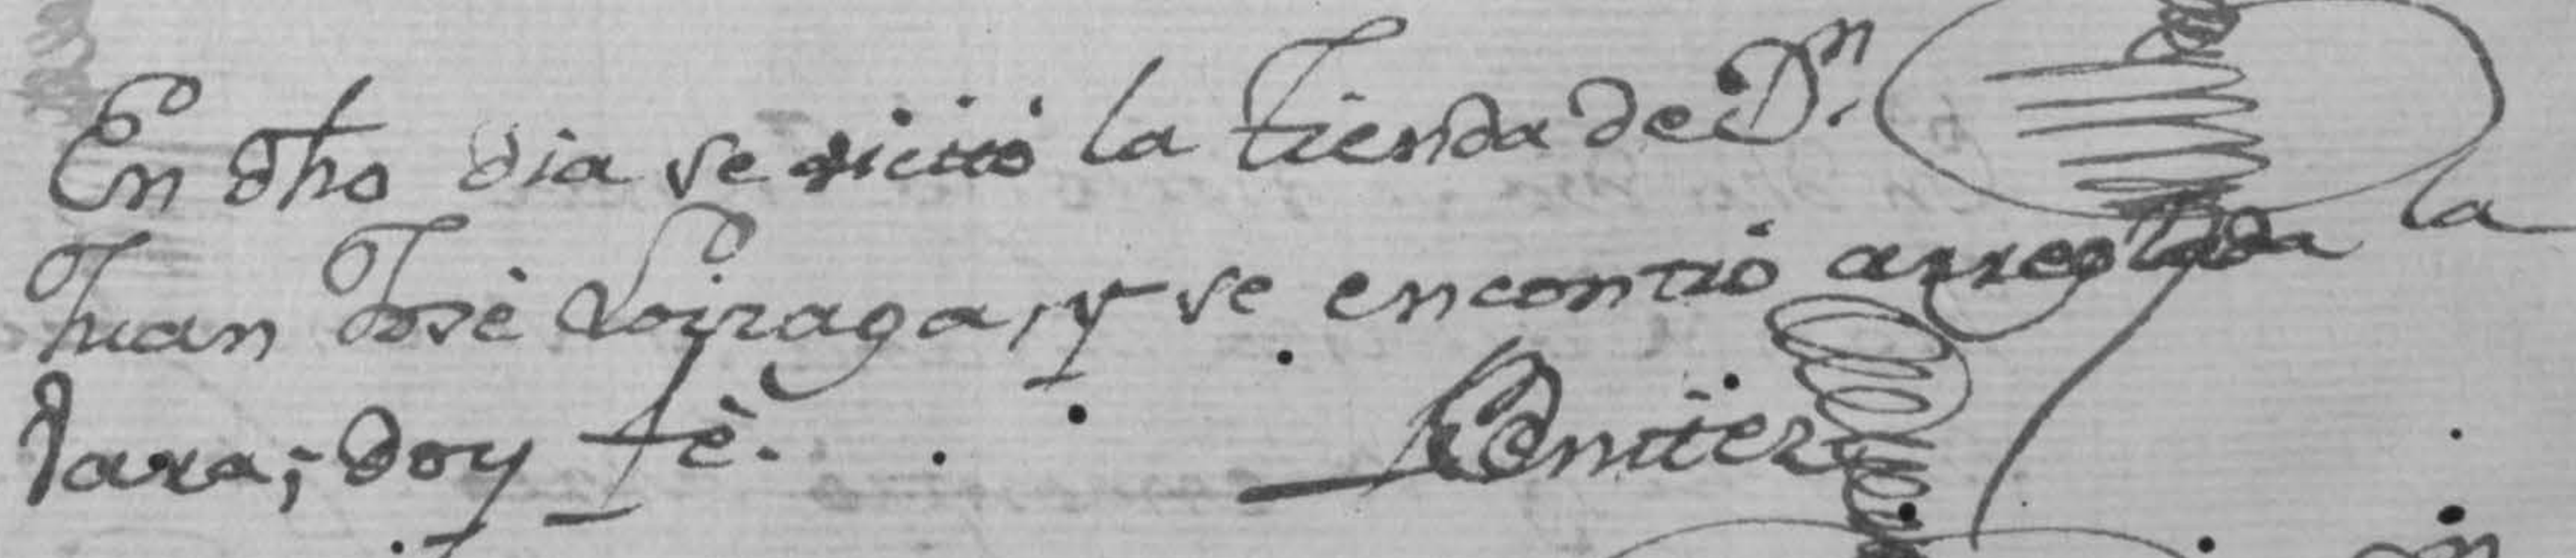 En dho dia se vicitó la tienda de Dn.
Juan José Loizaga, y se encontró arreglada la
Vara; doy fè.